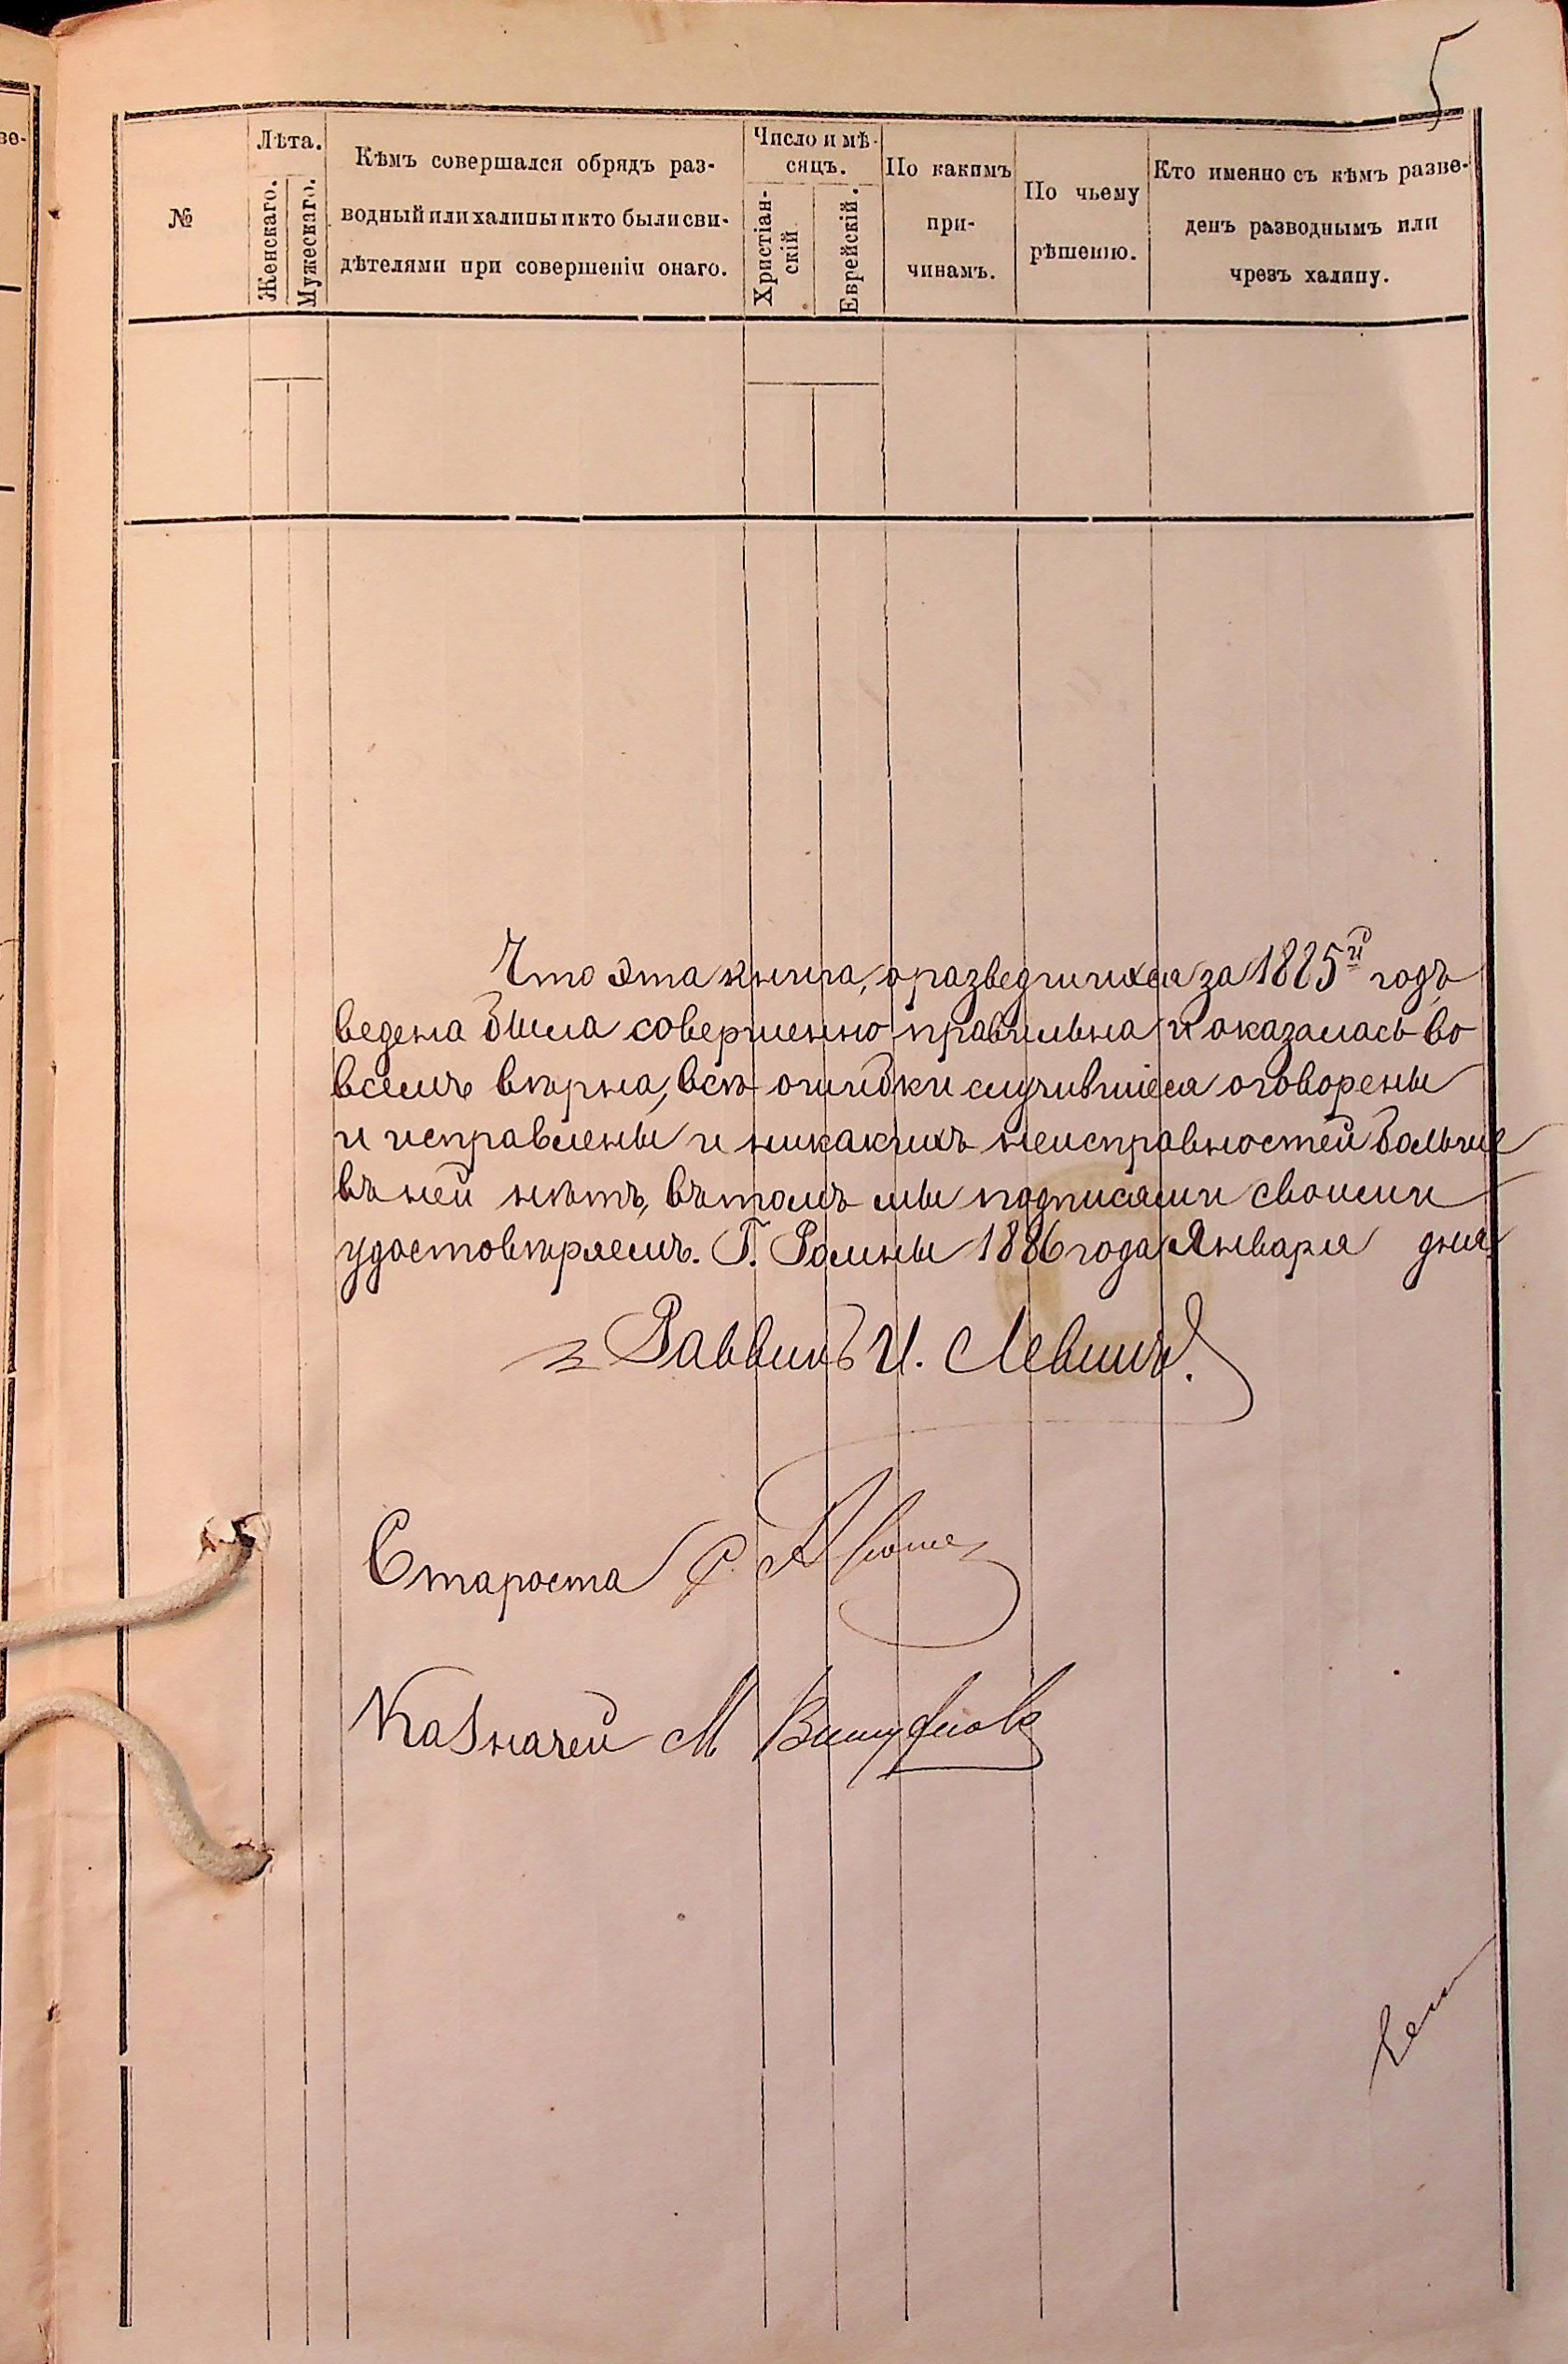 5
№
Лѣта.
Женскаго.
Мужескаго.
Кѣмъ совершался обрядъ раз-
водный или халицы и кто были сви-
дѣтелями при совершеніи онаго.
Число и мѣ-
сяцъ.
Христіан-
скій
Еврейскій.
По какимъ
при-
чинамъ.
По чьему
рѣшенію.
Кто именно съ кѣмъ разве-
денъ разводнымъ или
чрезъ халицу.
Что эта книга, о разведшихся за 1885й годъ
ведена была совершенно правильна и оказалась во
всемъ вѣрна, всѣ ошибки случившіеся оговорены
и исправлены и никакихъ неисправностей больше
въ ней нѣтъ, въ томъ мы подписями своими
удостовѣряемъ. Г. Ромны 1886 года Января дня
Раввинъ И. Левинъ.
Староста
Казначей М